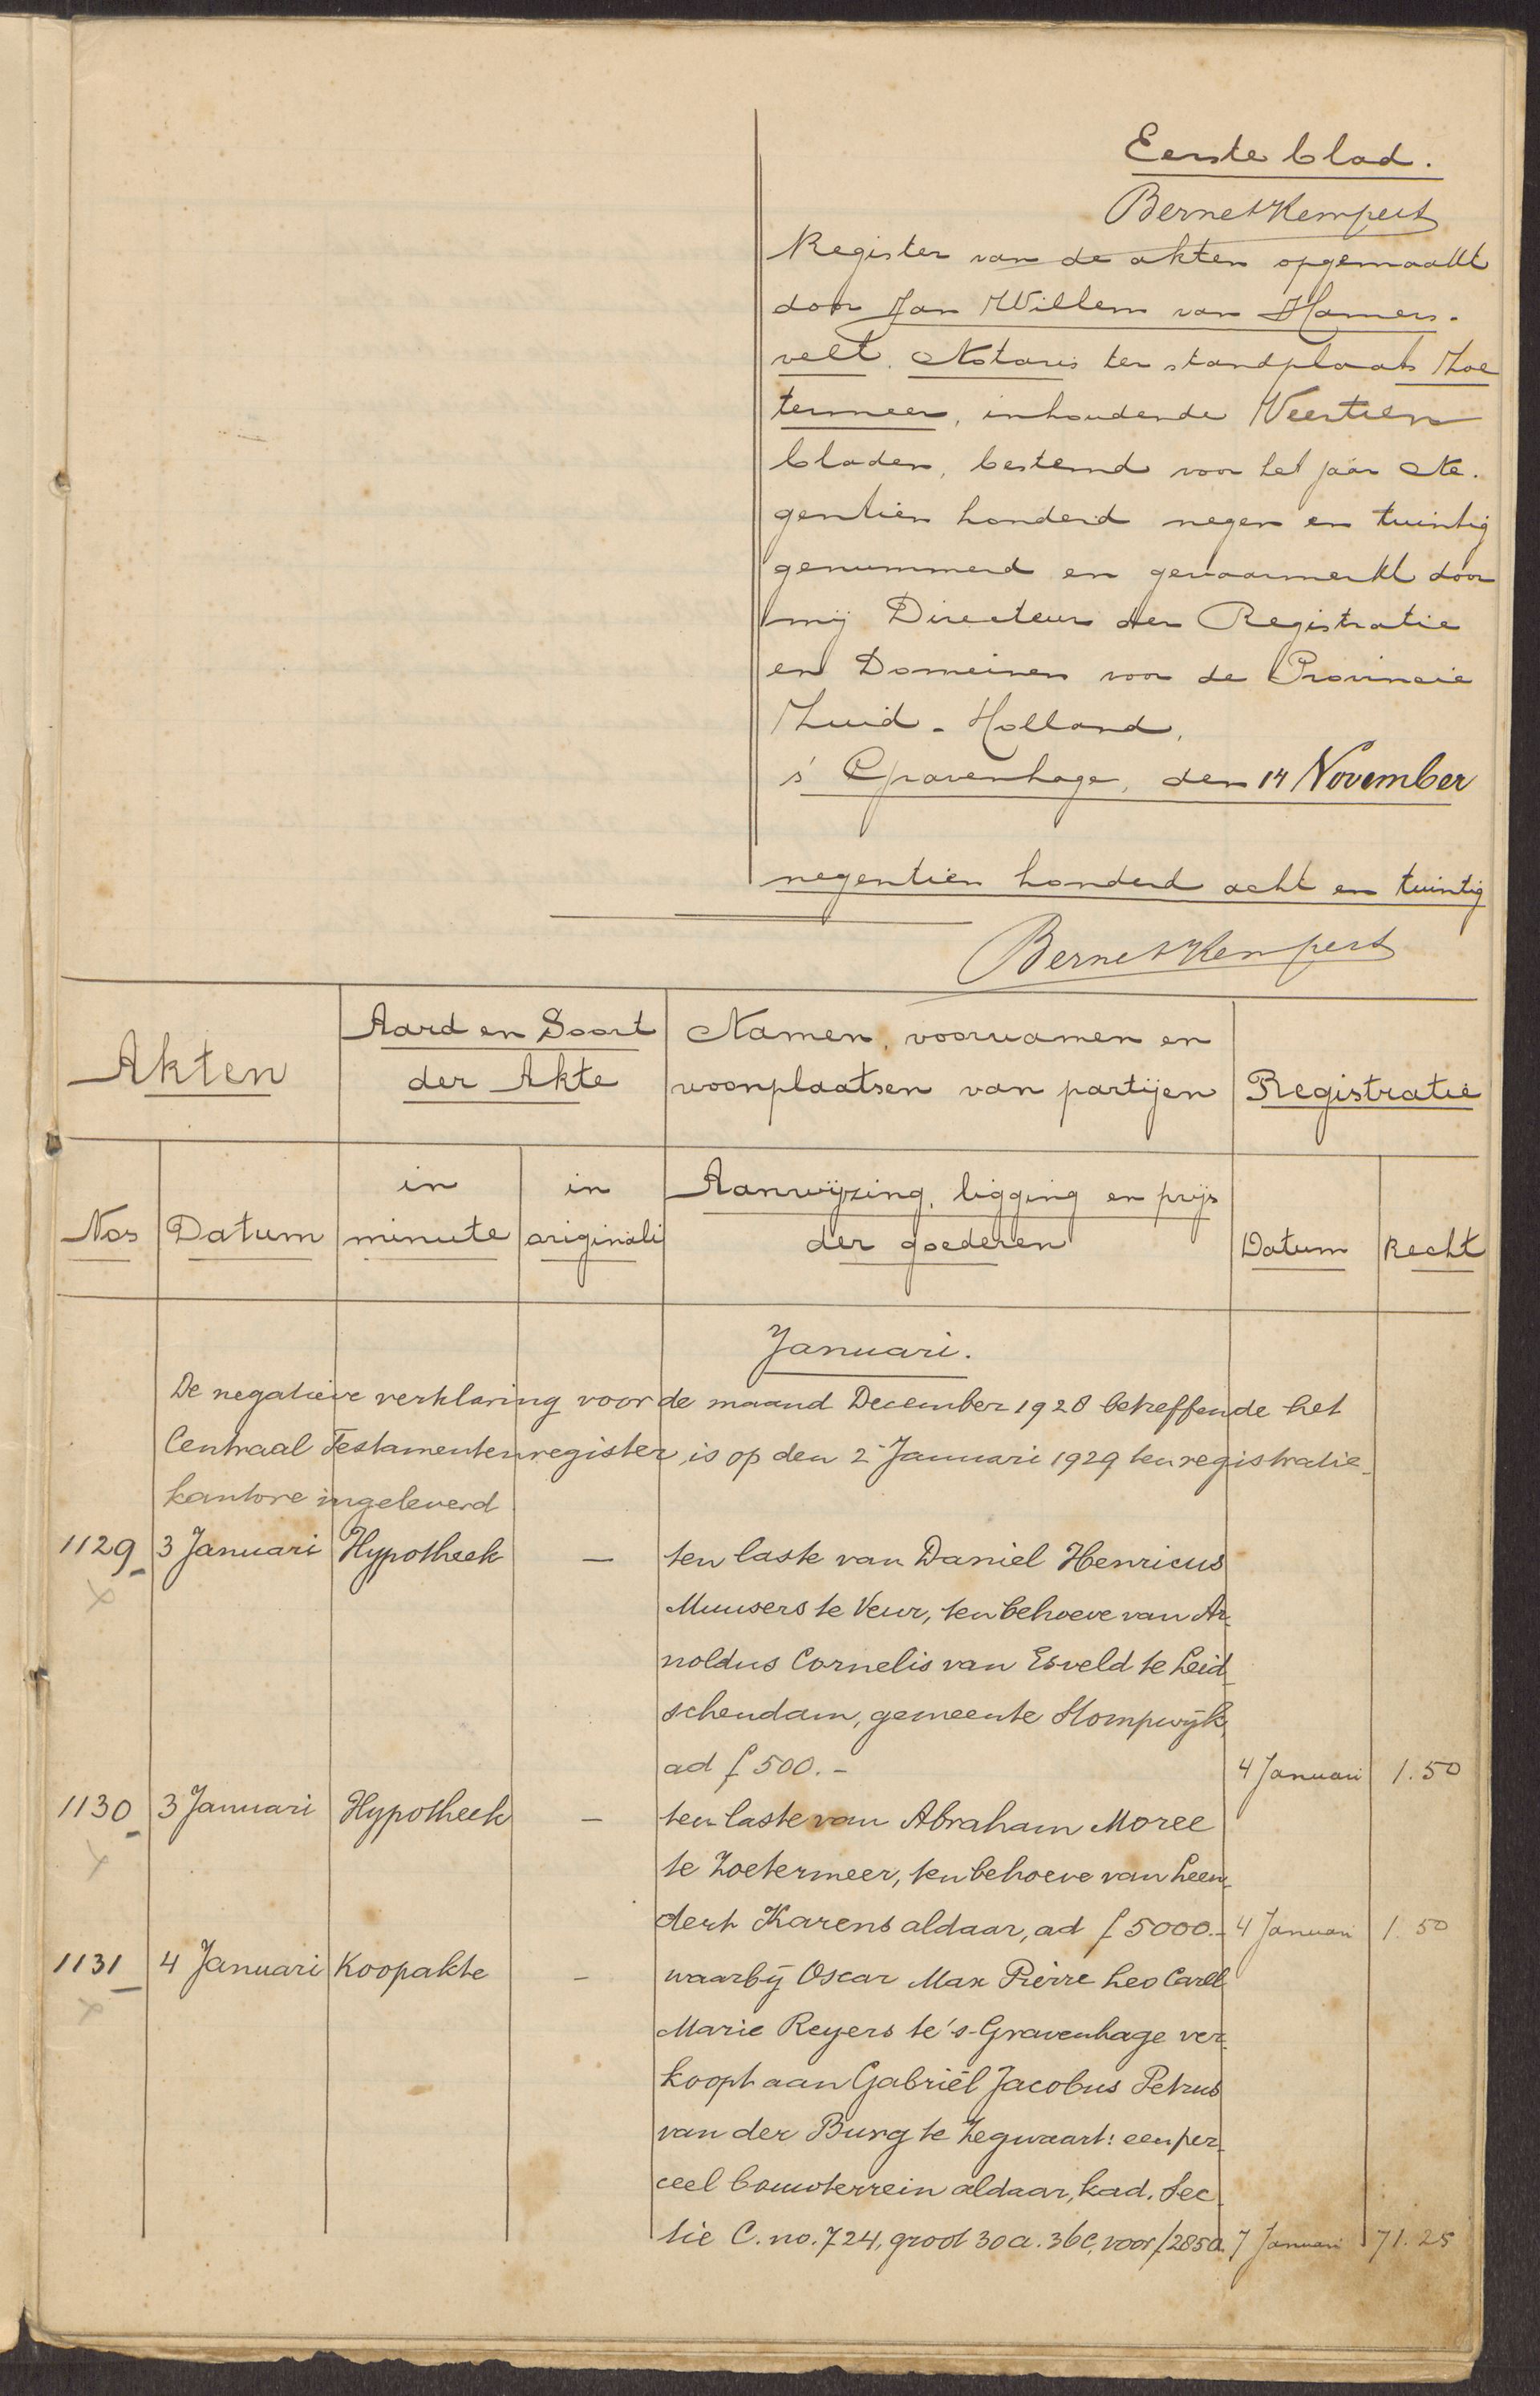 Eerste blad.
Bernet Kempers
Register van de akten opgemaakt
door Jan Willem van Hamers-
velt. Notaris ter standplaats Zoe
termeer, inhoudende Veertien
bladen, bestemd voor het jaar Ne-
gentien honderd negen en twintig
genummerd en gewaarmerkt door
mij Directeur der Registratie
en Domeinen voor de Provincie
Zuid-Holland,
's Gravenhage, den 14 November
negentien honderd acht en twintig
Bernet Kempers
Akten
Aard en Soort
der Akte
Namen, voornamen en
woonplaatsen van partijen
Registratie
Nos
Datum
in
minute
in
originali
Aanwijzing, ligging en prijs
der goederen
Datum
Recht
Januari.
De negatieve verklaring voor de maand December 1928 betreffende het
Centraal Testamentenregister, is op den 2 Januari 1929 ten registratie-
kantore ingeleverd
1129 3 Januari Hypotheek — ten laste van Daniel Henricus
Muusers te Veur, ten behoeve van Ar-
noldus Cornelis van Esveld te Leid-
schendam, gemeente Stompwijk,
ad f 500.- 4 Januari 1.50
1130 3 Januari Hypotheek — ten laste van Abraham Moree
te Zoetermeer, ten behoeve van Leen-
dert Karens aldaar, ad f 5000.- 4 Januari 1.50
1131 4 Januari Koopakte — waarbij Oscar Max Pierre Leo Carel
Marie Reyers te 's-Gravenhage ver-
koopt aan Gabriël Jacobus Petrus
van der Burg te Zegwaart: een per-
ceel bouwterrein aldaar, kad. Sec-
tie C. no. 724, groot 30 a. 36 c, voor f 2850. 7 Januari 71.25